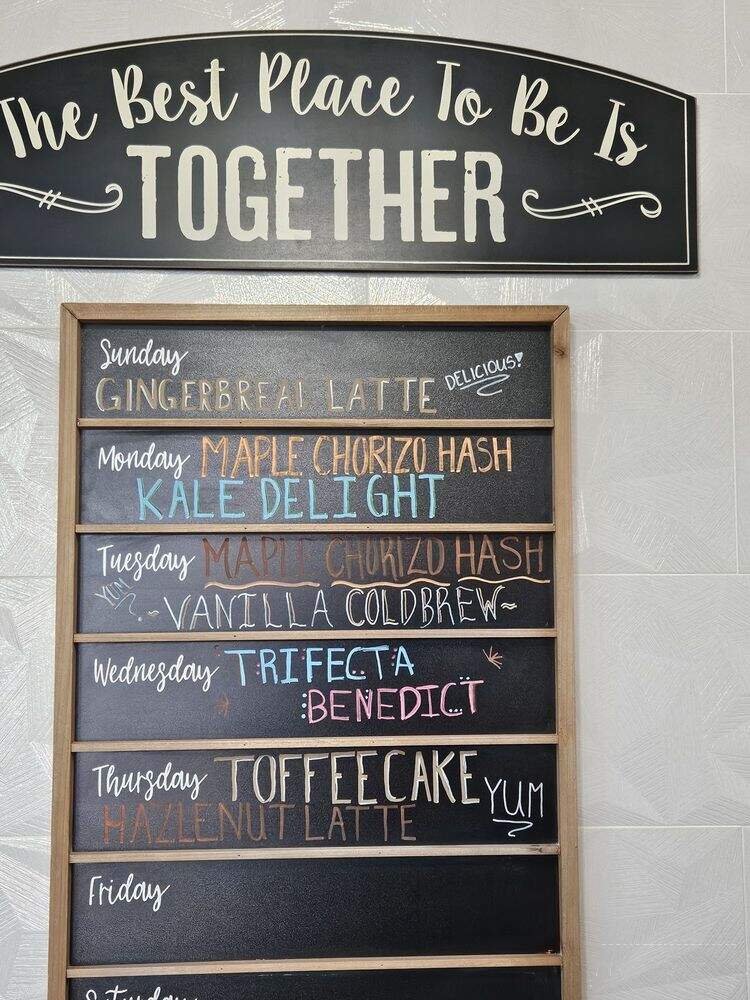 The Best Place To Be Is
TOGETHER
Sunday
GINGERBREAD LATTE DELICIOUS!
Monday MAPLE CHORIZO HASH
KALE DELIGHT
Tuesday MAPLE CHORIZO HASH
YUM ~VANILLA COLDBREW~
Wednesday TRIFECTA
BENEDICT
Thursday TOFFEECAKE YUM
HAZLENUT LATTE
Friday
Saturday